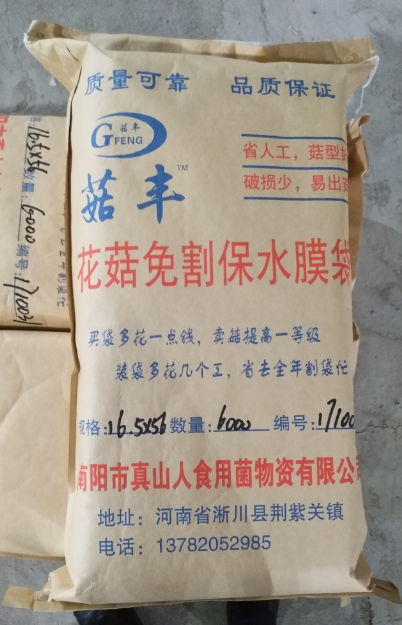 质量可靠 品质保证
G 菇丰
FENG
菇丰™
省人工，菇型
破损少，易出
花菇免割保水膜袋
买袋多花一点钱，卖菇提高一等级
装袋多花几个工，省去全年割袋忙
规格:16.5x56 数量:6000 编号:17100
南阳市真山人食用菌物资有限公司
地址：河南省淅川县荆紫关镇
电话：13782052985
16.5x54 数量:6000 编号:171003